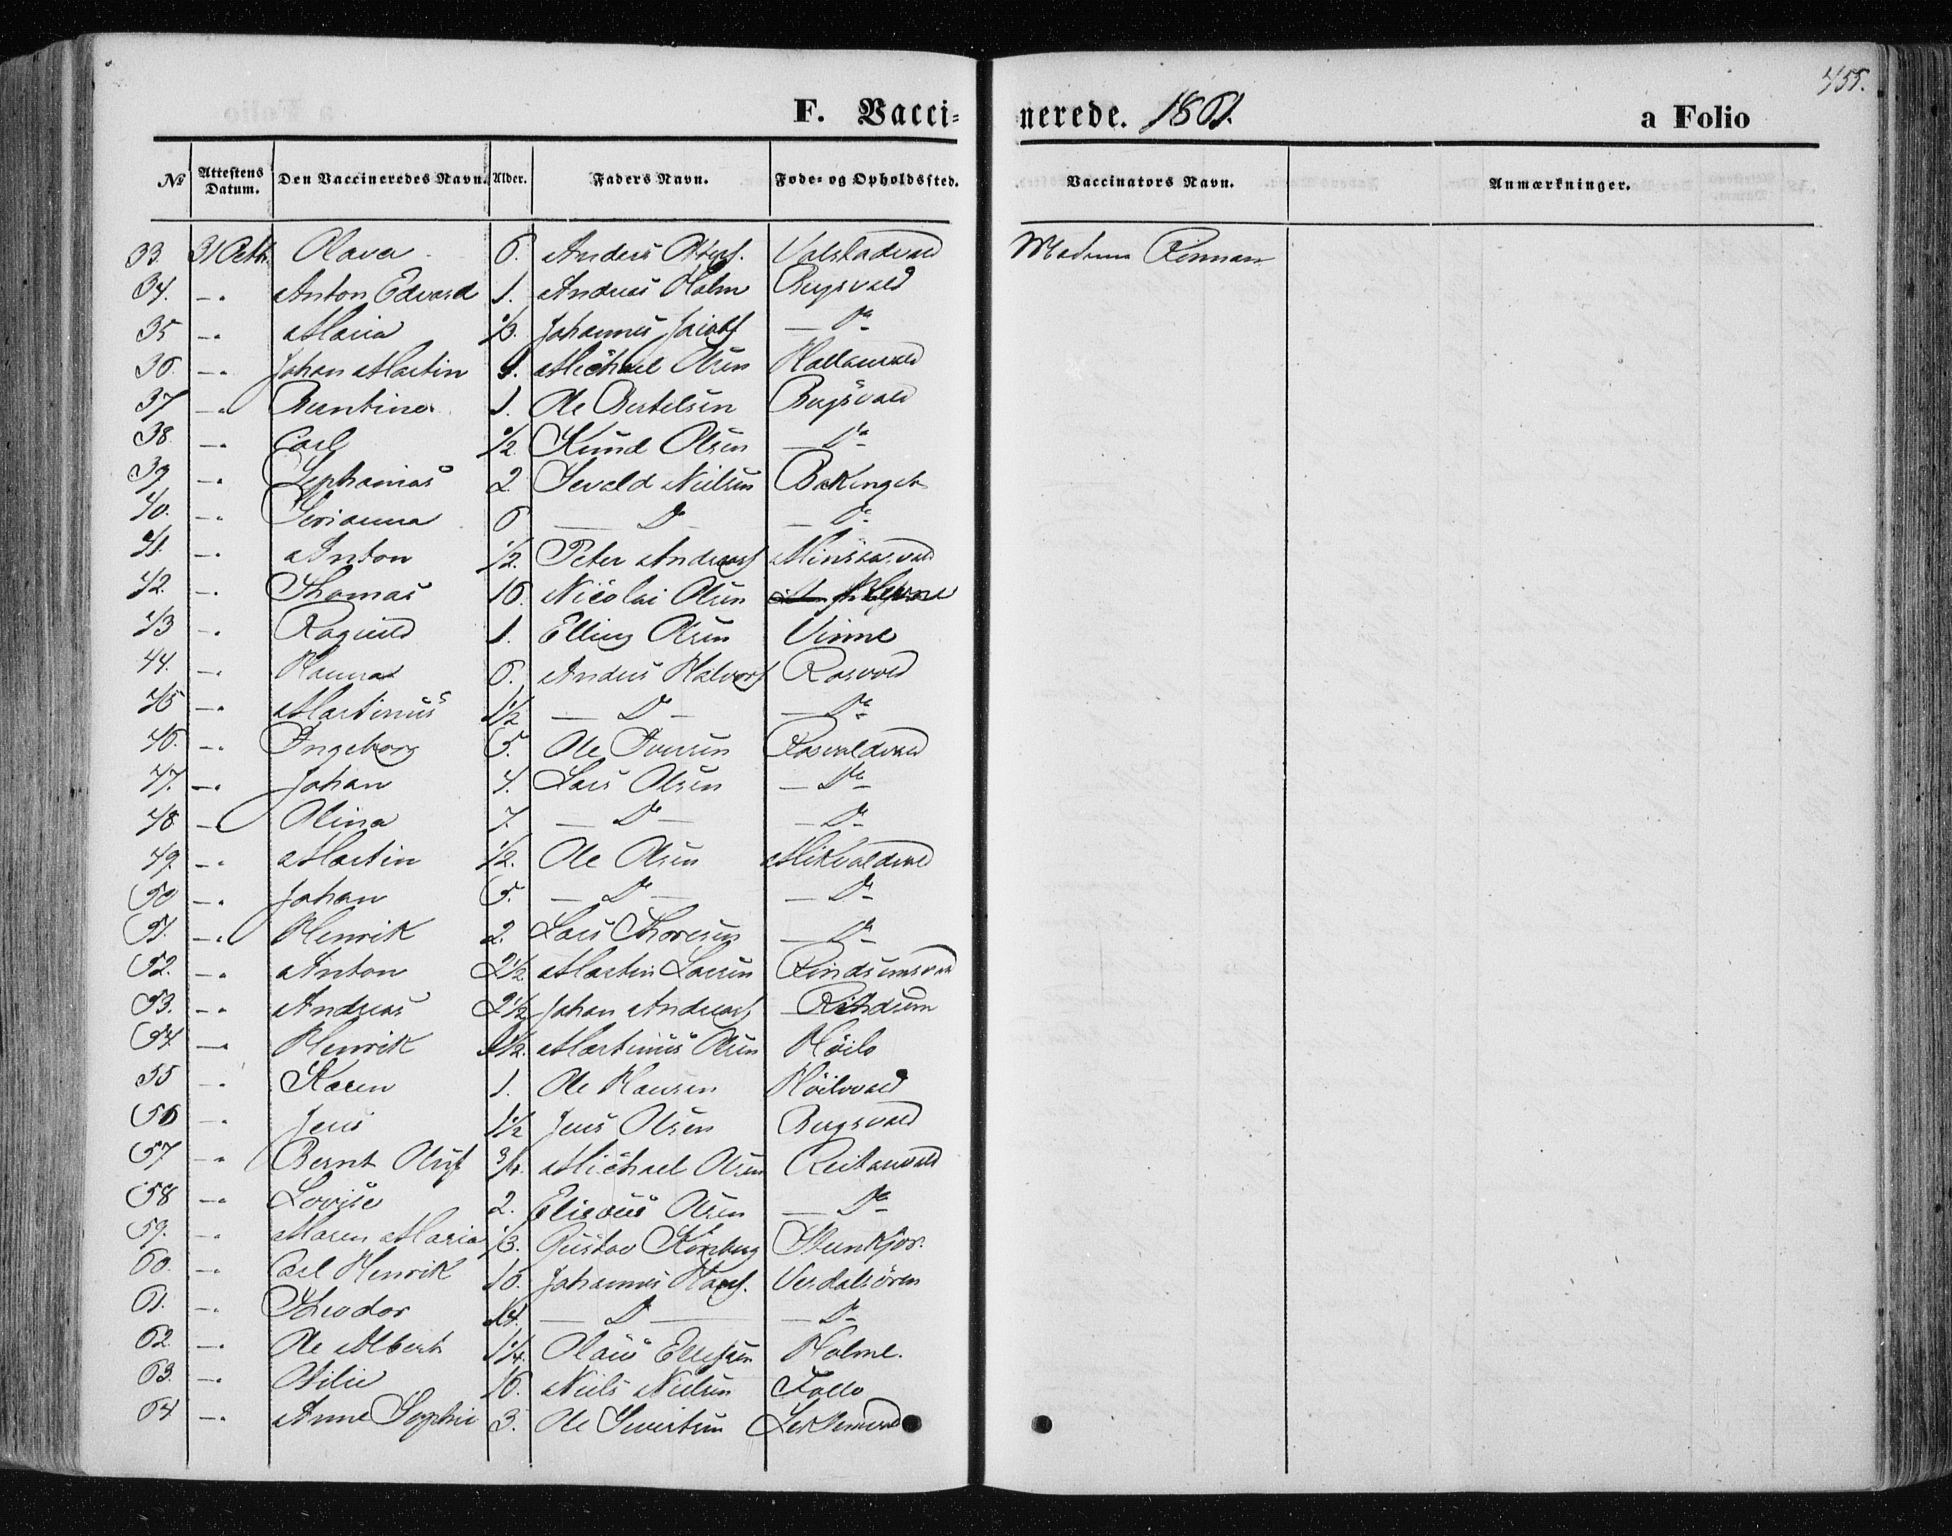 455.
F. Vacci=
nerede. 1861.
a Folio
No
Attestens Datum.
Den Vaccineredes Navn.
Alder.
Faders Navn.
Føde= og Opholdssted.
Vaccinators Navn.
Anmærkninger.
33. 31 Octb. Olava 6. Anders
34. -" Anton Edvard 1. Andreas Holm
35 -" Maria 1/3. Johannes Jacobs — Do
36. -" Johan Martin Michael Olsen
37 -" Berntine 1. Ole Bertelsen
38. -" Carl 1/2. Knud Olsen — Do
39 -" Zephanias 2 Sevald Nielsen
40. -" 6 — Do — Do
41. -" Anton 1/2. Peter Andreas
42. -" Thomas 10. Nicolai Olsen
43 -" 1. Elling Olsen Vinne
44. -" Hanna 6. Anders Halvors Rosvold
45 -" Martinus 1 1/2 — Do — — Do
46. -" Ingeborg 5. Ole Iversen Rosvoldvald
47. -" Johan 4. Lars Olsen — Do
48 -" Olina 7. — Do — — Do
49. -" Martin 1/2. Ole Olsen Mikvoldvald
50 -" Johan 5. — Do — — Do
51. -" Henrik 2. Lars Thoresen — Do
52. -" Anton 2 1/2 Martin Larsen Rindsumsvald
53. -" Andreas 2 1/2 Johan Andreas Rindsum
54 -" Henrik Martinus Olsen Høilo
55 -" Karen 1. Ole Hansen Høilovald
56 -" Jens 1 1/2 Jens Olsen
57 -" Bernt Oluf 3/4. Michael Olsen Reitanvald
58 -" Lovise 2. Elisæus Olsen — Do
59. -" Maren Maria 1/3. Gustav Steenkjær.
60. -" Carl Henrik 16. Johannes Hans. Verdalsøren
61. -" Theodor 14. — Do — — Do
62. -" Ole Albert 1 1/4. Olaus Ellefsen Holme.
63. -" Otilie 16. Niels Nielsen Follo
64 -" Anne Sophie 3. Ole Sivertsen
Madame